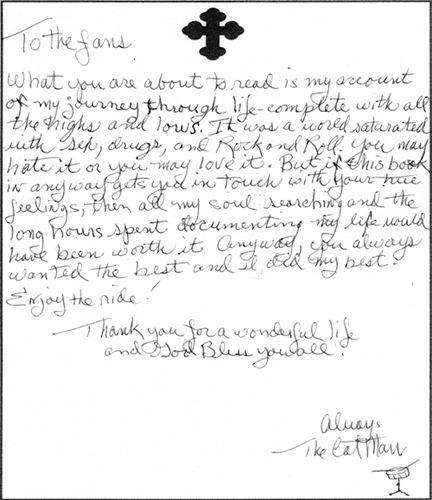 To the fans
What you are about to read is my account
of my journey through life - complete with all
the highs and lows. It was a world saturated
with sex, drugs, and Rock and Roll. You may
hate it or you may love it. But if this book
in anyway gets you in touch with your true
feelings, then all my soul searching and the
long hours spent documenting my life would
have been worth it. Anyway, you always
wanted the best and I did my best.
Enjoy the ride!
Thank you for a wonderful life
and God Bless you all!
Always
The Cat Man